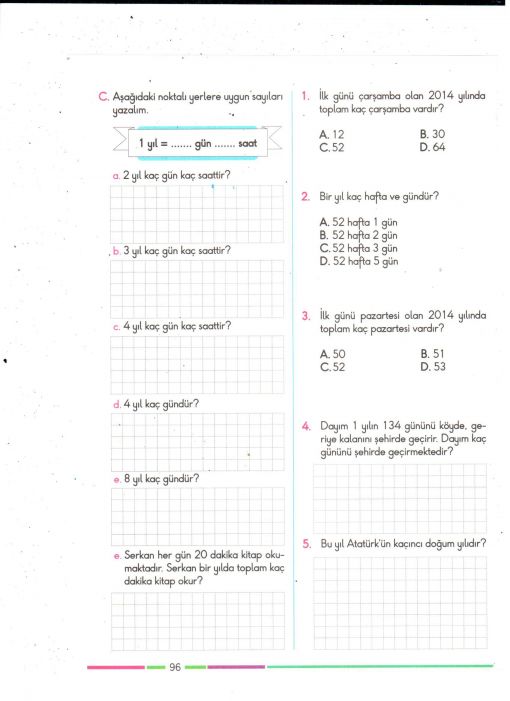 C. Aşağıdaki noktalı yerlere uygun sayıları
yazalım.
1 yıl = ....... gün ....... saat
a. 2 yıl kaç gün kaç saattir?
b. 3 yıl kaç gün kaç saattir?
c. 4 yıl kaç gün kaç saattir?
d. 4 yıl kaç gündür?
e. 8 yıl kaç gündür?
e. Serkan her gün 20 dakika kitap oku-
maktadır. Serkan bir yılda toplam kaç
dakika kitap okur?
1. İlk günü çarşamba olan 2014 yılında
toplam kaç çarşamba vardır?
A. 12 B. 30
C. 52 D. 64
2. Bir yıl kaç hafta ve gündür?
A. 52 hafta 1 gün
B. 52 hafta 2 gün
C. 52 hafta 3 gün
D. 52 hafta 5 gün
3. İlk günü pazartesi olan 2014 yılında
toplam kaç pazartesi vardır?
A. 50 B. 51
C. 52 D. 53
4. Dayım 1 yılın 134 gününü köyde, ge-
riye kalanını şehirde geçirir. Dayım kaç
gününü şehirde geçirmektedir?
5. Bu yıl Atatürk'ün kaçıncı doğum yılıdır?
96